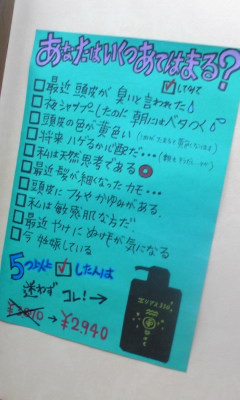 あなたはいくつあてはまる?
☑してみて
□最近 頭皮が臭いと言われた
□夜シャンプーしたのに朝にはベタつく
□頭皮の色が黄色い
□将来ハゲるか心配だ…
□私は天然思考である
□最近髪が細くなったカモ…
□頭皮にフケやかゆみがある。
□私は敏感肌な方だ。
□最近やけにぬけ毛が気になる
□今 妊娠している
5つ以上☑した人は
迷わず コレ!→
→¥2,940